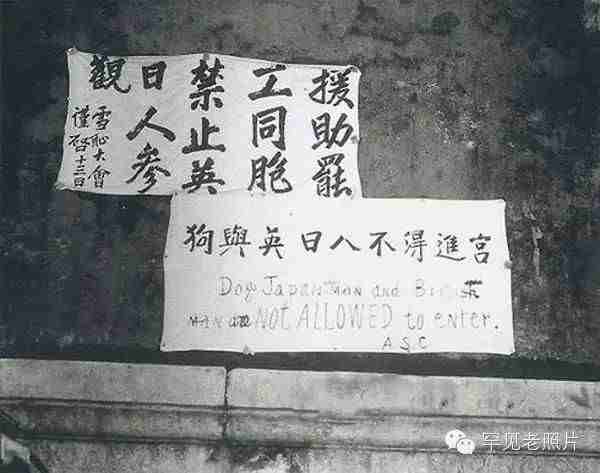 援助罷
工同胞
禁止英
日人參
觀
雪恥大會
謹啓十三日
狗與英日人不得進宮
Dog JAPANMAN and
MAN NOT ALLOWED to enter.
A S C
罕见老照片